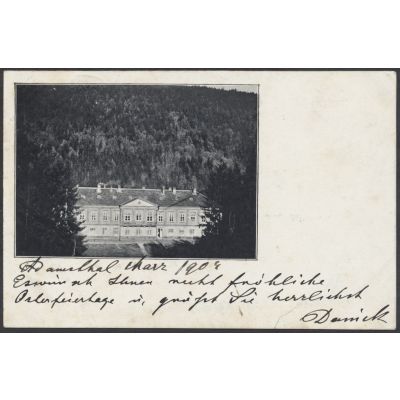 Adamsthal Marz 1904
Es wünscht Ihnen recht fröhliche
Osterfeiertage u. grüßt Sie herzlichst